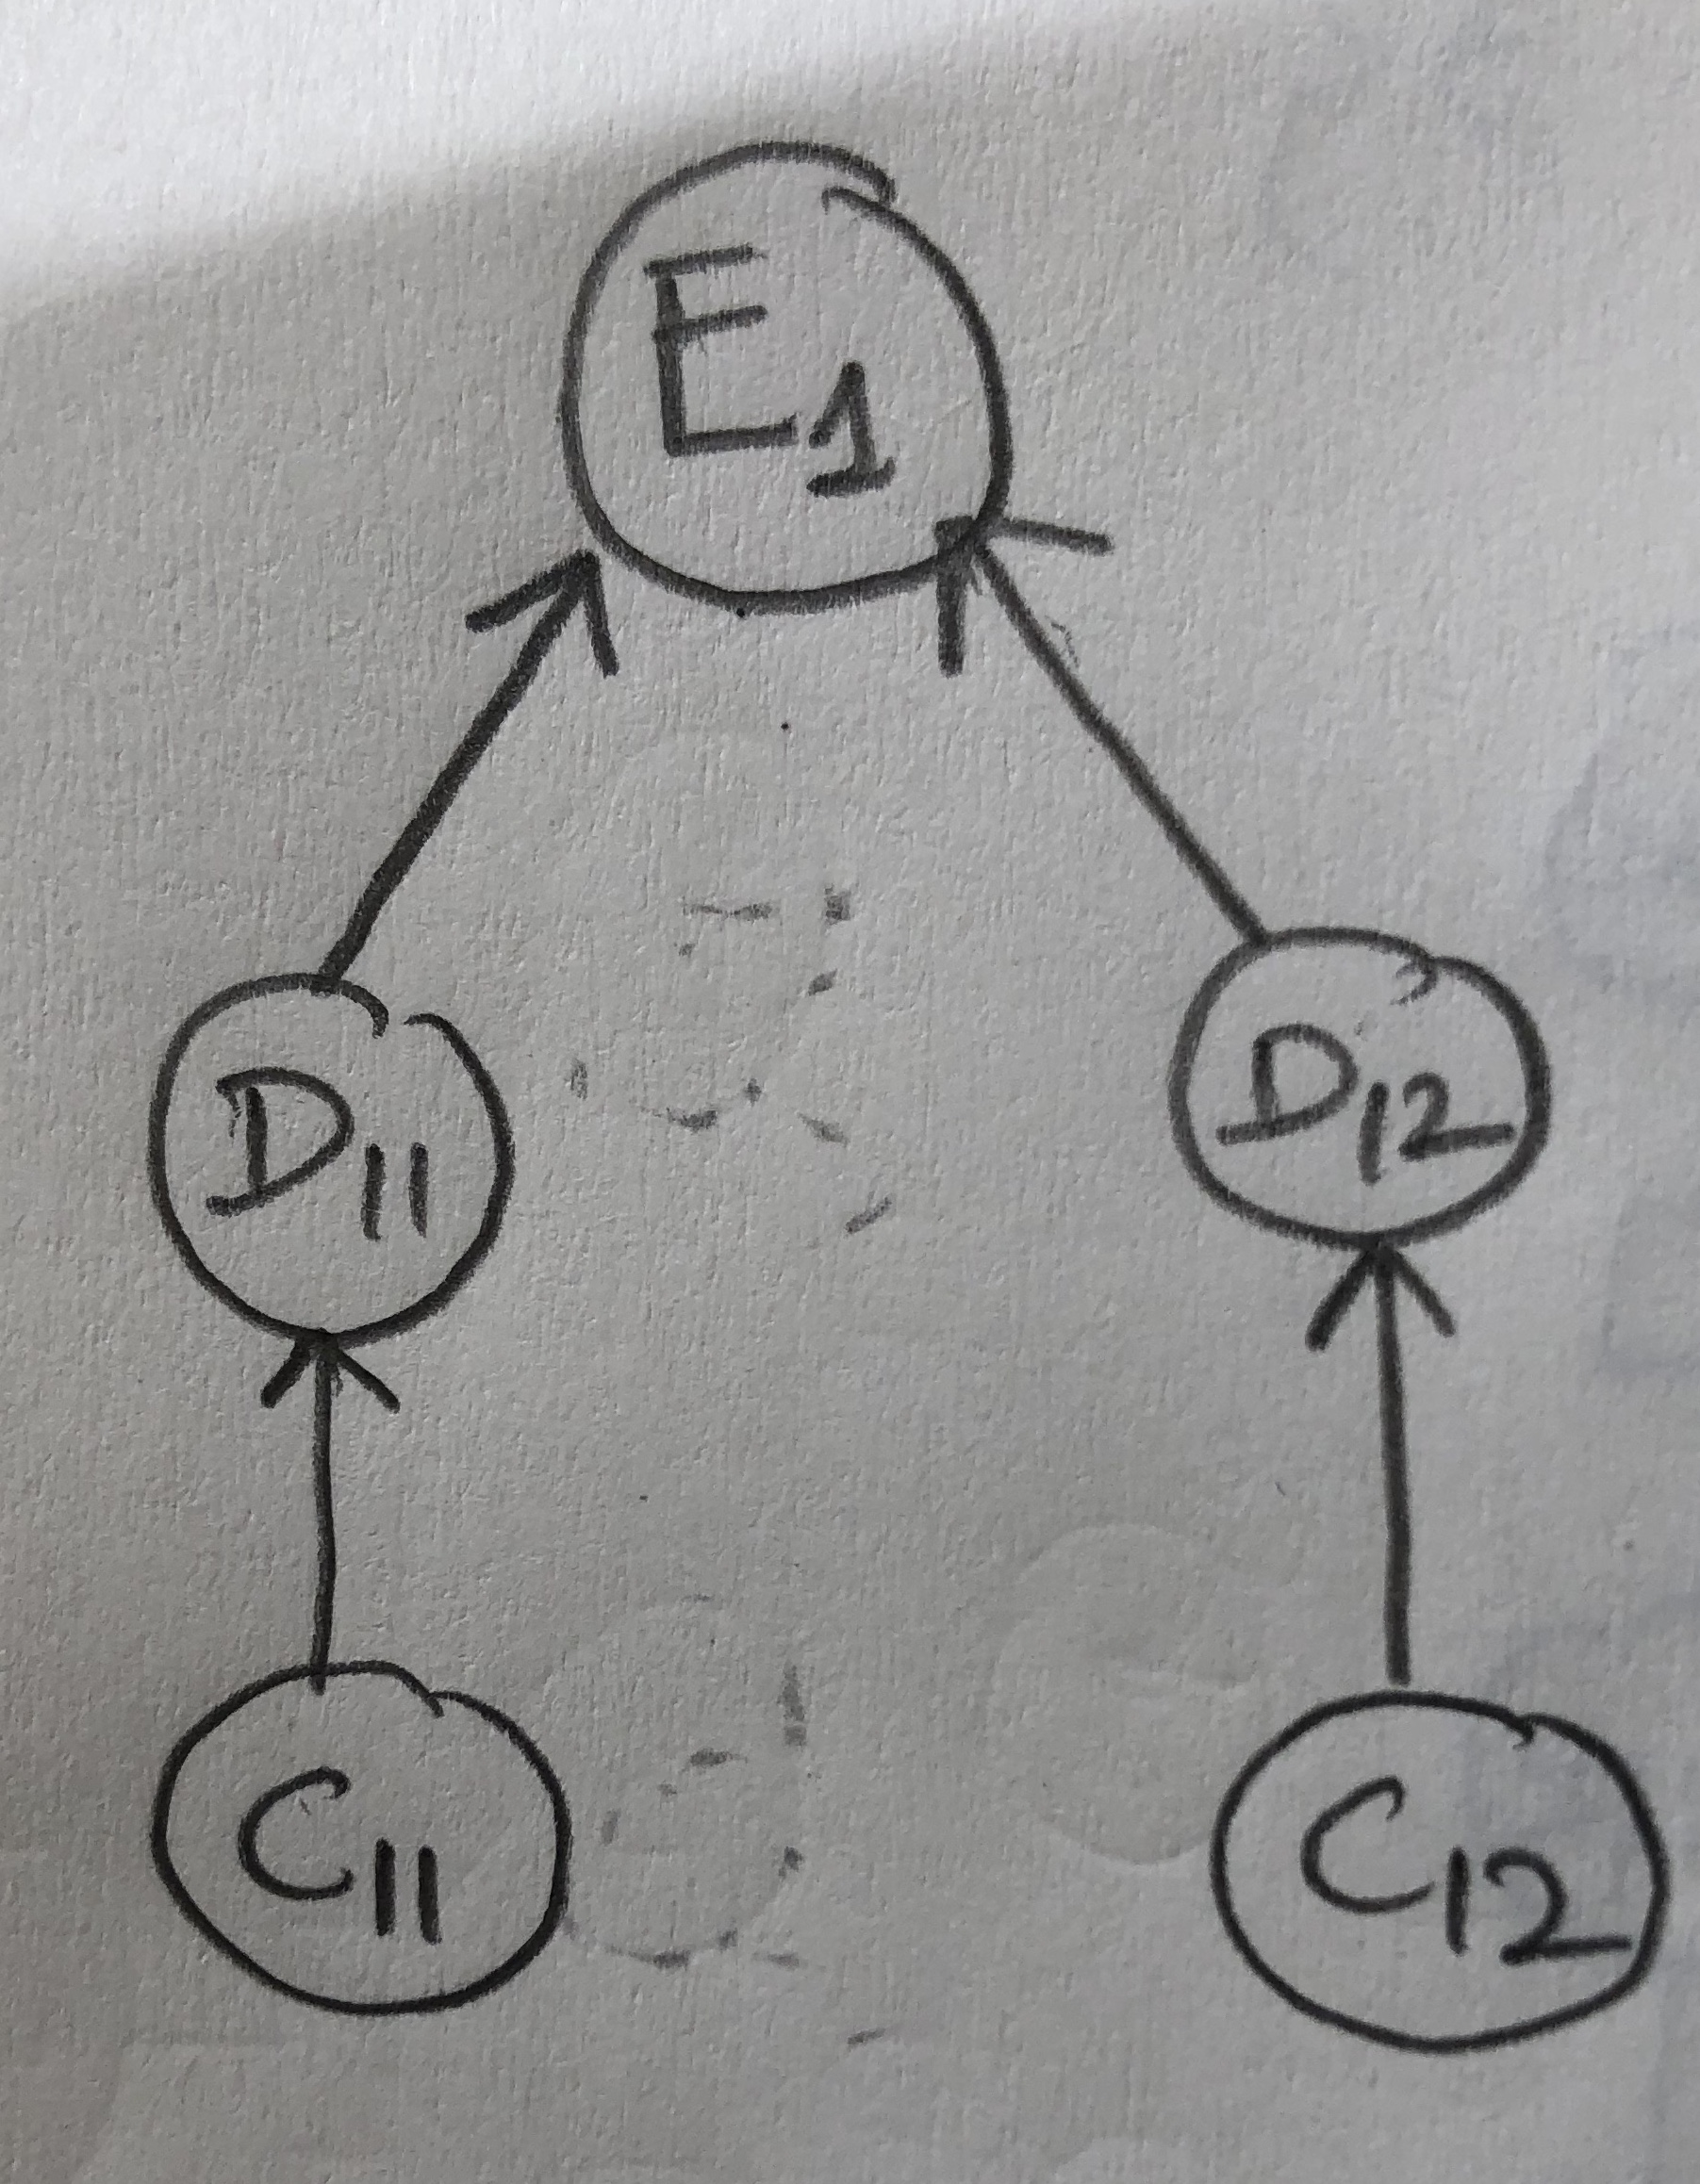 E1
D11 D12
C11 C12